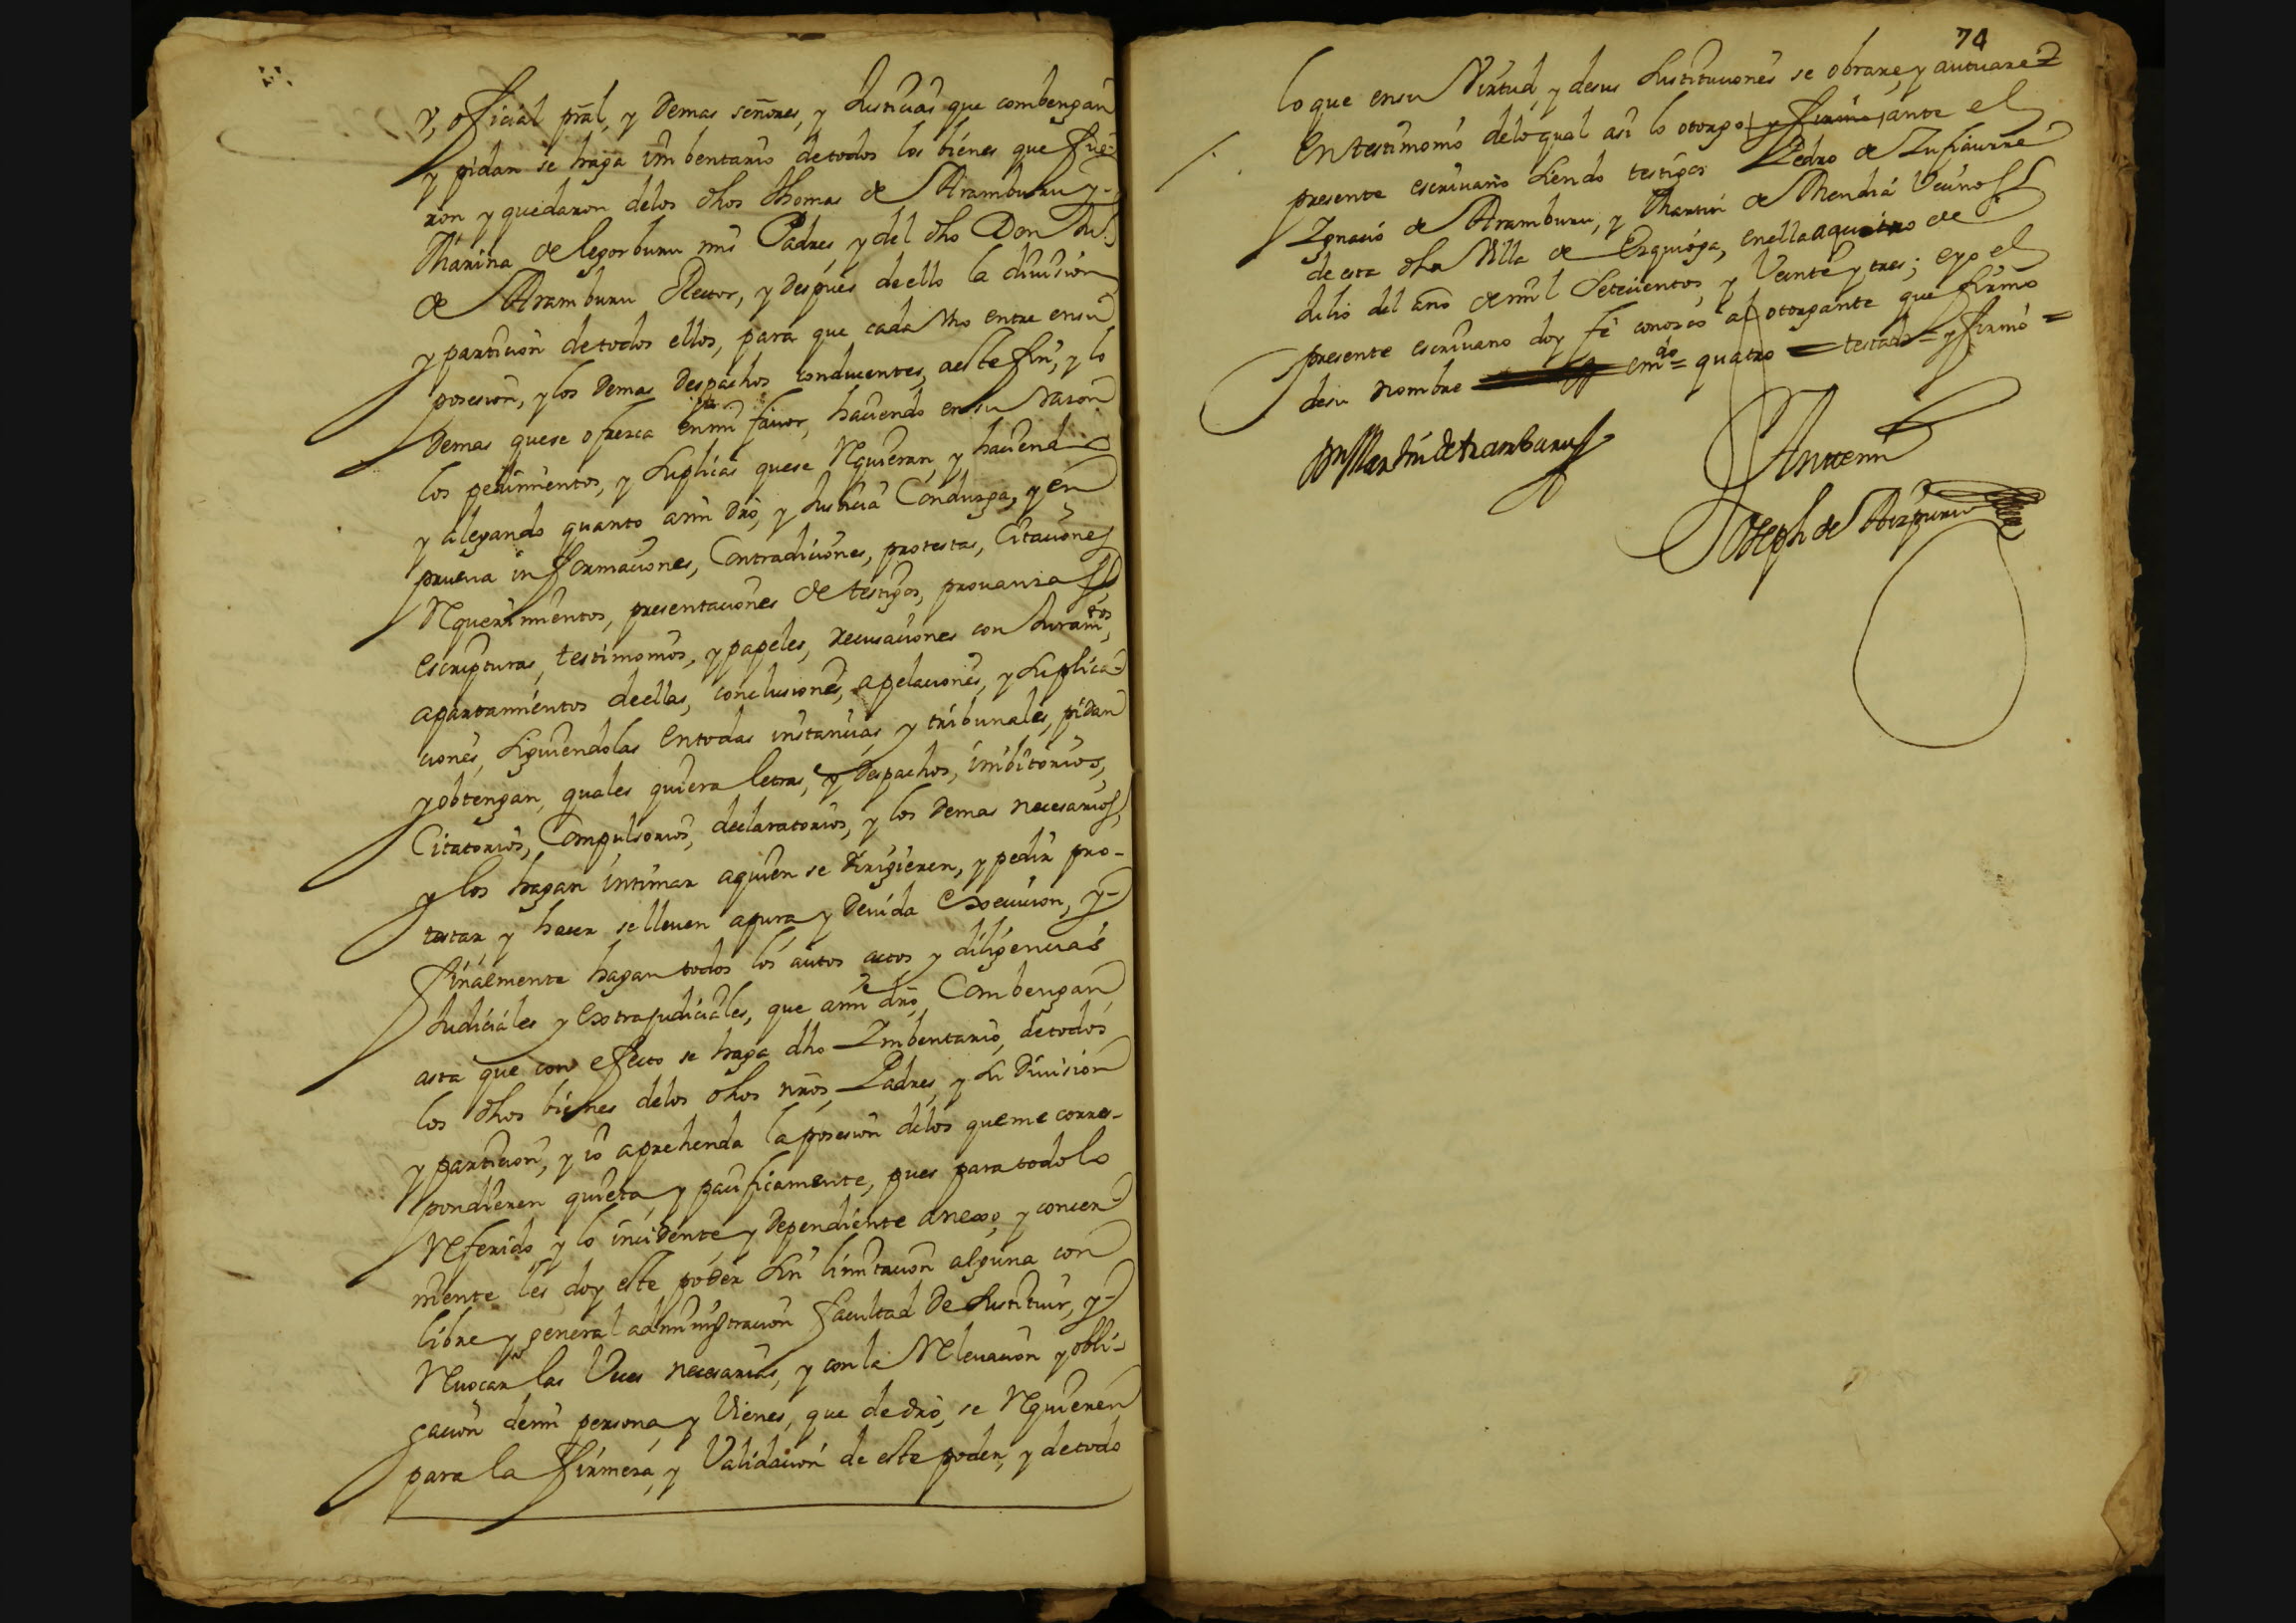 y, oficial prãl, y demas señores, y Justicias que combengan
y pidan se haga imbentario detodos los bienes que fue-
ron y quedaron delos dhos Thomas de Aramburu y-
Marina de Legorburu mis Padres, y del dho Don
de Aramburu Rector, y despues deello la diuision
y particion detodos ellos, para que cada vno entre ensu
posesion, y los demas despachos conducentes, aeste fin, y lo
demas quese ofresca enmi fauor, haciendo ensu rason
los pedimientos, y suplicas quese requieran, y haciendo
y alegando quanto ami dro, y Justicia Condusga, y en
prueua informaciones, Contradiciones, protestas, Citaciones
requerimientos, presentaciones de testigos, prouansas
escripturas, testimonios, y papeles, recusaciones con Juramtos,
apartamientos deellas, conclusiones, apelaciones, y suplica-
ciones, siguiendolas entodas instancias, y tribunales, pidan
y obtengan, quales quiera letras, y despachos, imbitorios,
Citatorios, Compulsorios, declaratorios, y los demas necesarios,
y los hagan intimar aquien se dirigieren, y pedir pro-
testar y hacer se lleuen apura y deuida execucion, y-
finalmente hagan todos los autos actos y diligencias
Judiciales y extrajudiciales, que ami dro, Combengan
asta que con efecto se haga dho Imbentario, detodos
los dhos bienes delos dhos nros Padres, y su Diuision
y particion, y io aprehenda la posesion delos queme corres-
pondieren quieta, y pacificamente, pues para todo lo
referido, y lo incidente y dependiente anexo, y concer-
niente les doy este poder sin limitacion alguna con
libre y general administracion facultad de sustituir, y-
reuocar las Vces necesarias, y con la releuacion y obli-
gacion demi persona, y Vienes, que de dro, se requieren
para la firmesa, y Validacion de este poder, y detodo
74
lo que ensu Virtud, y desus sustituciones se obrare, y autuare
En testimonio delo qual asi lo otorgo, y firmo, ante el
presente escriuano siendo testigos Pedro de Zufiaurre
Ignacio de Aramburu, y Martin de Mendia Vecinos
de esta dha Villa de Ezquioga, enella a quatro de
Julio del año de mil Setecientos, y Veinte y tres; eyo el
presente escriuano doy fe conosco al otorgante que firmo
desu nombre emdo = quatro = testado = y firmo =
Dn Martin de Aramburu
Antemi
Joseph de Aizpuru